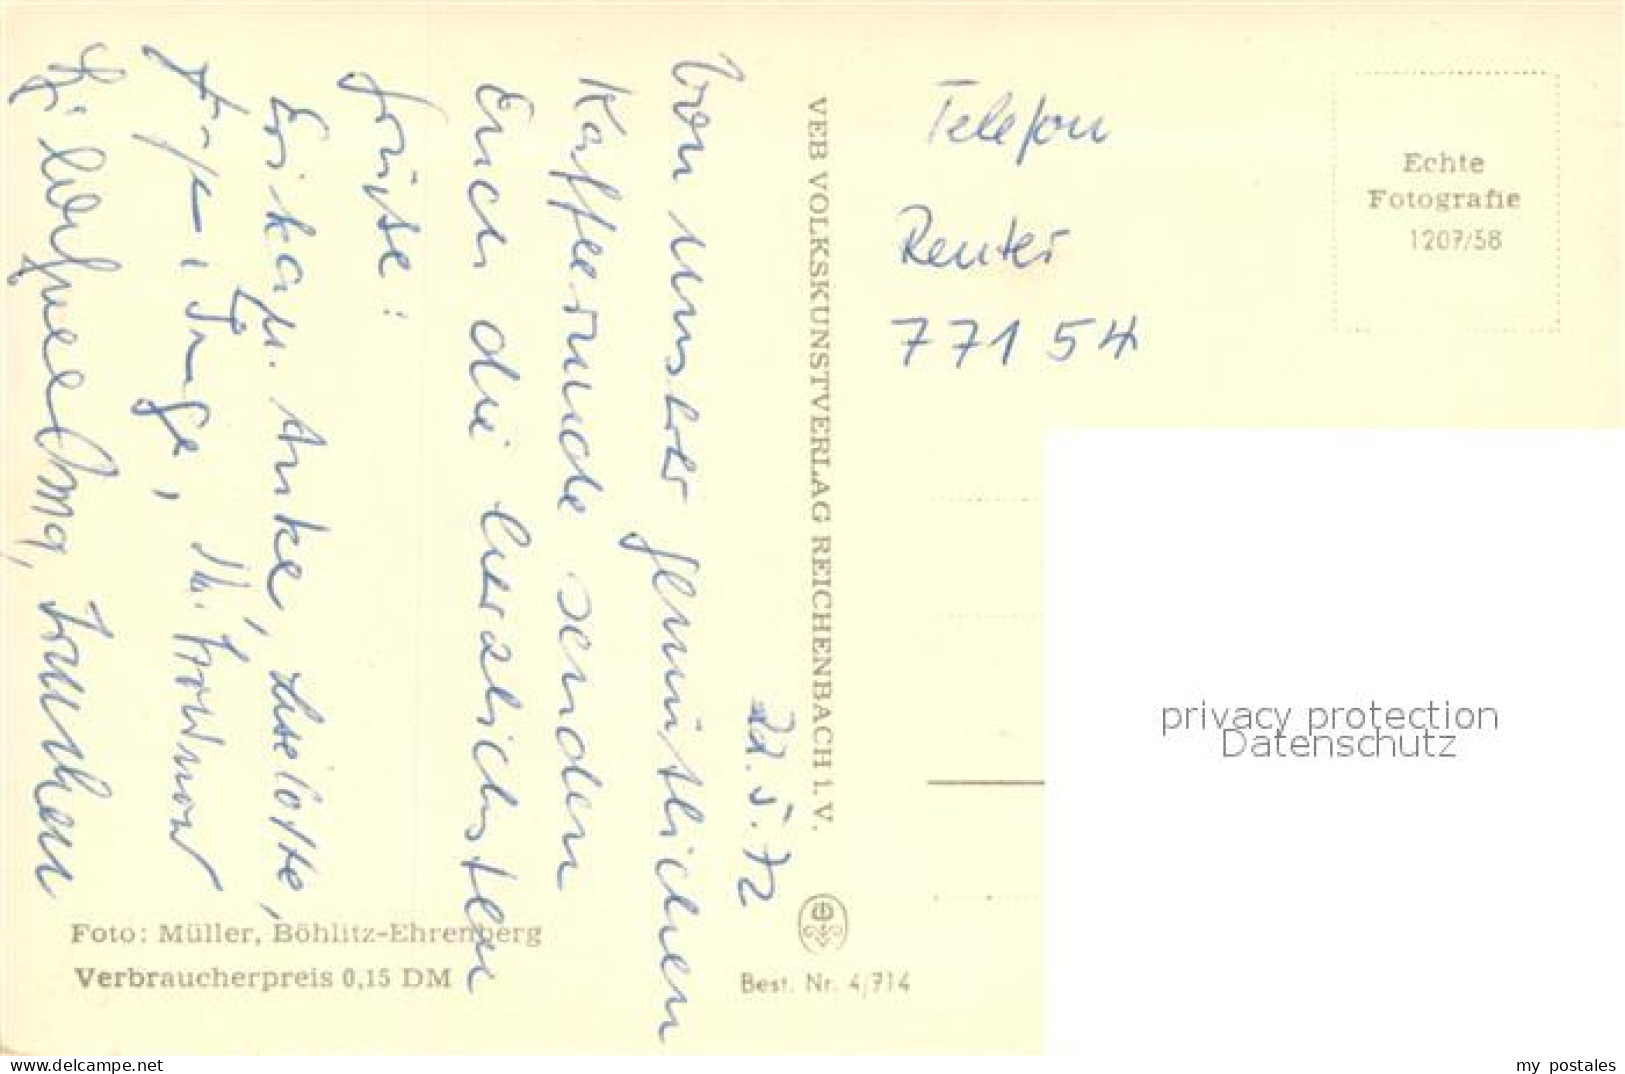 22.5.72
Von unserer gemütlichen
Kafferunde senden
Euch die herzlichsten
Grüße:
Erika, Anke, Liselotte,
Inge,
Oma,
VEB VOLKSKUNSTVERLAG REICHENBACH I. V.
Telefon
Reuter
77154
Echte
Fotografie
1207/58
Foto: Müller, Böhlitz-Ehrenberg
Verbraucherpreis 0,15 DM
Best. Nr. 4/714
privacy protection
Datenschutz
my postales